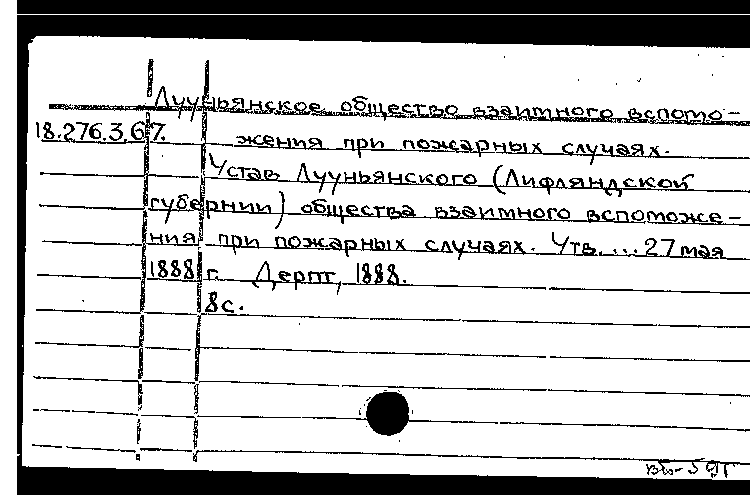 Лууньянское общество взаимного вспомо-
18.276.3.67. жения при пожарных случаях.
Устав Лууньянского (Лифляндской
губернии) общества взаимного вспоможе-
ния при пожарных случаях. Утв. ... 27 мая
1888 г. Дерпт, 1888.
8с.